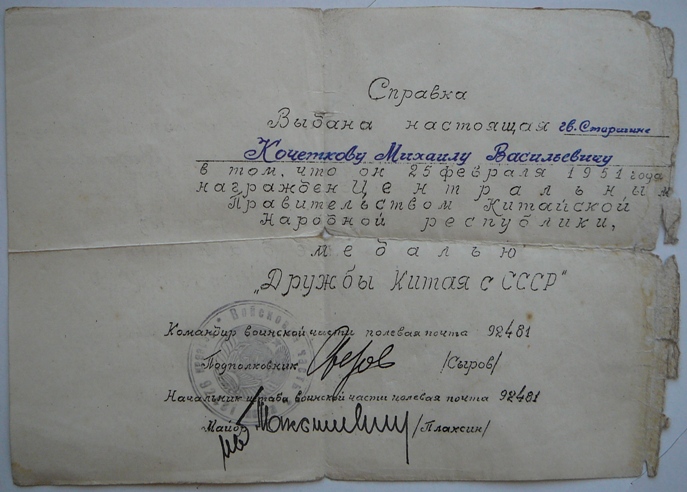 Справка
Выдана настоящая гв. Старшине
Кочеткову Михаилу Васильевичу
в том, что он 25 февраля 1951 года
награжден Центральным
Правительством Китайской
Народной республики,
медалью
„Дружбы Китая с СССР"
Командир воинской части полевая почта 92481
Подполковник /Сыров/
Начальник штаба воинской части полевая почта 92481
Майор /Плаксин/